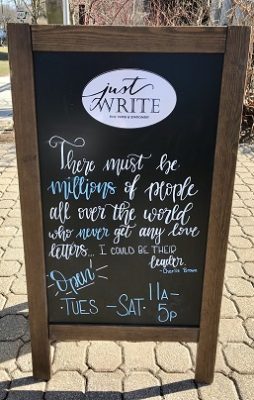 just
WRITE
There must be
millions of people
all over the world
who never get any love
letters... I COULD BE THEIR
leader.
-Charlie Brown
Open
TUES - SAT · 11A-
5P